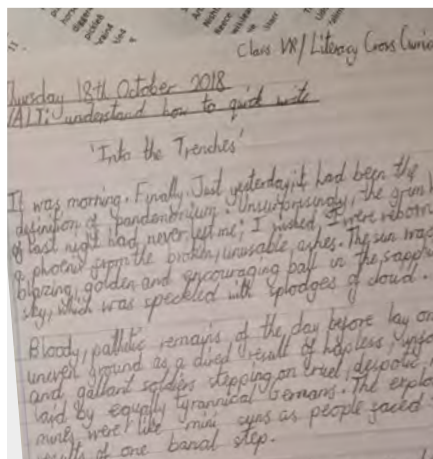 horn
diggers
pickled
Vaind
Class VR/Literacy Cross Curric
Thursday 18th October 2018
WALT: understand how to quick write
'Into the Trenches'
It was morning. Finally. Just yesterday, it had been the
definition of pandemonium. Unsurprisingly, the grim
of last night had never left me; I wished I were reborn
a phoenix from the broken, unusable, ashes. The sun was
blazing, golden and encouraging ball in the
sky, which was speckled with splodges of cloud.
Bloody, pathetic remains of the day before lay on
uneven ground as a direct result of hapless,
and gallant soldiers stepping on cruel, despotic,
laid by equally tyrannical Germans. The
mines were like mini suns as people faced
results of one banal step.